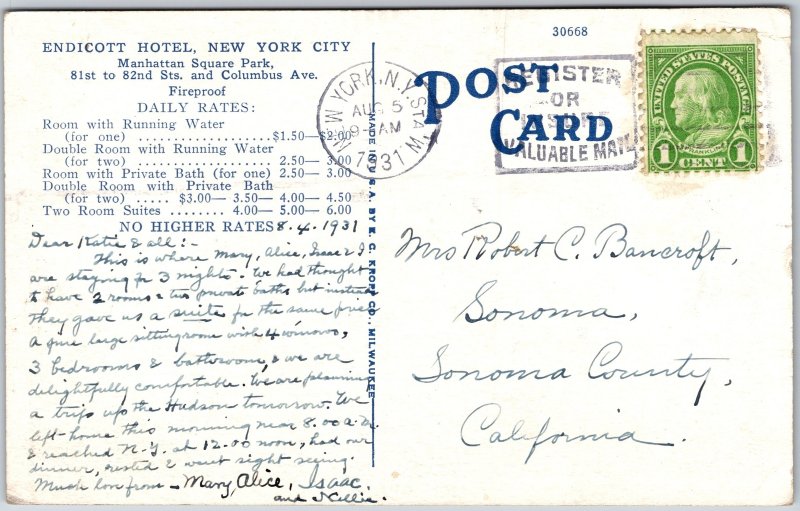 ENDICOTT HOTEL, NEW YORK CITY
Manhattan Square Park,
81st to 82nd Sts. and Columbus Ave.
Fireproof
DAILY RATES:
Room with Running Water
(for one) ........................$1.50—$2.00
Double Room with Running Water
(for two) ...................... 2.50— 3.00
Room with Private Bath (for one) 2.50— 3.00
Double Room with Private Bath
(for two) ..... $3.00— 3.50— 4.00— 4.50
Two Room Suites ........ 4.00— 5.00— 6.00
NO HIGHER RATES
8.4.1931
Dear Katie & all:-
This is where Mary, Alice, Isaac & I
are staying for 3 nights. We had thought
to have 2 rooms & two private baths but instead
they gave us a suite for the same price
A fine large sittingroom with 4 windows,
3 bedrooms & bathroom, & we are
delightfully comfortable. We are planning
a trip up the Hudson tomorrow. We
left home this morning near 8.00 a.m.
& reached N.Y. at 12.00 noon, had our
dinner, rested & went sight seeing.
Much love from - Mary, Alice, Isaac.
and Nellie.
MADE IN U. S. A. BY E. C. KROPP CO., MILWAUKEE
30668
POST
CARD
NEW YORK, N.Y. STA. W
AUG 5
9-AM
1931
REGISTER
OR
INSURE
VALUABLE MAIL
UNITED STATES POSTAGE
FRANKLIN
1 CENT 1
Mrs Robert C. Bancroft,
Sonoma,
Sonoma County,
California.